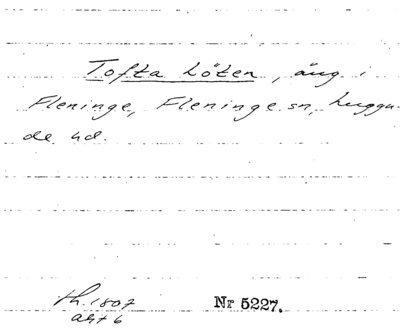 Tofta Löten, äng i
Fleninge, Fleninge sn, Luggu-
de hd.
th. 1807
akt 6
Nr 5227.